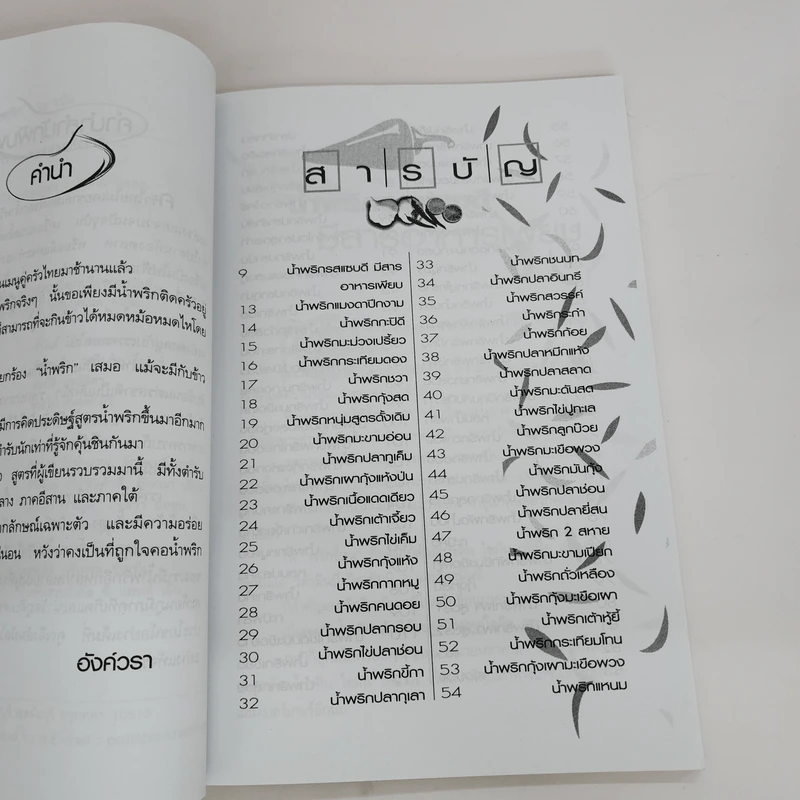 คำนำ
นเมนูคู่ครัวไทยมาช้านานแล้ว
พริกจริงๆ นั้นขอเพียงมีน้ำพริกติดครัวอยู่
ก็สามารถที่จะกินข้าวได้หมดหม้อหมดไหโดย
ยกร้อง "น้ำพริก" เสมอ แม้จะมีกับข้าว
มีการคิดประดิษฐ์สูตรน้ำพริกขึ้นมาอีกมาก
ตำรับนักเท่าที่รู้จักคุ้นชินกันมา
ง สูตรที่ผู้เขียนรวบรวมมานี้ มีทั้งตำรับ
ลาง ภาคอีสาน และภาคใต้
อกลักษณ์เฉพาะตัว และมีความอร่อย
นอน หวังว่าคงเป็นที่ถูกใจคอน้ำพริก
อังศ์วรา
สารบัญ
9 น้ำพริกรสแซบดี มีสาร
อาหารเพียบ
13 น้ำพริกแมงดาปีกงาม
14 น้ำพริกกะปิดี
15 น้ำพริกมะม่วงเปรี้ยว
16 น้ำพริกกระเทียมดอง
17 น้ำพริกชวา
18 น้ำพริกกุ้งสด
19 น้ำพริกหนุ่มสูตรดั้งเดิม
20 น้ำพริกมะขามอ่อน
21 น้ำพริกปลาทูเค็ม
22 น้ำพริกเผากุ้งแห้งป่น
23 น้ำพริกเนื้อแดดเดียว
24 น้ำพริกเต้าเจี้ยว
25 น้ำพริกไข่เค็ม
26 น้ำพริกกุ้งแห้ง
27 น้ำพริกกากหมู
28 น้ำพริกคนดอย
29 น้ำพริกปลากรอบ
30 น้ำพริกไข่ปลาช่อน
31 น้ำพริกขี้กา
32 น้ำพริกปลากุเลา
33 น้ำพริกชนบท
34 น้ำพริกปลาอินทรี
35 น้ำพริกสวรรค์
36 น้ำพริกระกำ
37 น้ำพริกก้อย
38 น้ำพริกปลาหมึกแห้ง
39 น้ำพริกปลาสลาด
40 น้ำพริกมะดันสด
41 น้ำพริกไข่ปูทะเล
42 น้ำพริกลูกบ๊วย
43 น้ำพริกมะเขือพวง
44 น้ำพริกมันกุ้ง
45 น้ำพริกปลาช่อน
46 น้ำพริกปลายี่สน
47 น้ำพริก 2 สหาย
48 น้ำพริกมะขามเปียก
49 น้ำพริกถั่วเหลือง
50 น้ำพริกกุ้งมะเขือเผา
51 น้ำพริกเต้าหู้ยี้
52 น้ำพริกกระเทียมโทน
53 น้ำพริกกุ้งเผามะเขือพวง
54 น้ำพริกแหนม